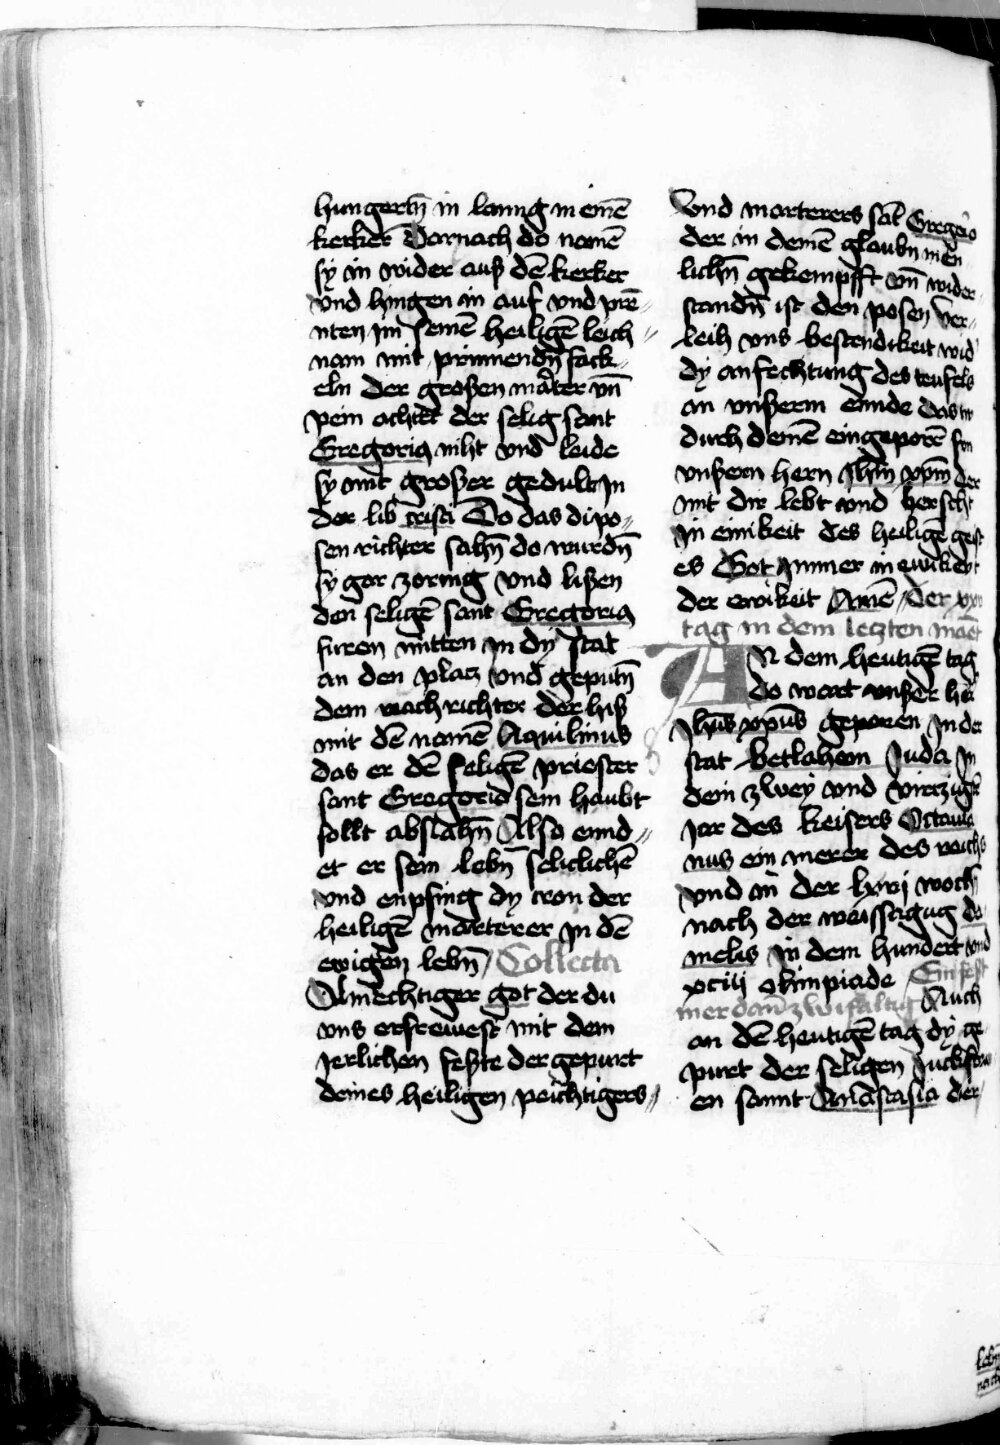 hungertn̄ in lanng in einē
kerker Darnach do namē
sy in wider auß dē kerker
vnd hingen in auf vnd pre-
nten im seinē heiligē leich-
nam mit prinnendn̄ fack-
eln der großen marter vn̄
pein achtet der selig sant
Gregorius niht vnd leide
sy mit großer gedult in
der lib cristi Do das di po-
sen richter sahn̄ do wurdn̄
sy gar zornig vnd lißen
den seligē sant Gregorius
furen mitten in dy stat
an den placz vnd geputn̄
dem nachrichter der hiß
mit dē namē Aquilinus
das er dē seligē priester
sant Gregorio sein haubt
sollt abslahn̄ Also ennd-
et er sein lebn̄ seliclichē
vnd enpfing dy cron der
heiligē marterer in dē
ewigen lebn̄ Collecta
Almechtiger got der du
vns erfrewest mit dem
Jerlichen feste der gepurt
deines heiligen peichtigers
Vnd marterers sāt Gregorio
der in deinē glaubn̄ men
lichn̄ gekempfft vn̄ wider-
standn̄ ist den posen Ver-
leih vns bestendikeit wid'
dy anfechtung des teufels
an vnßerm ennde das wir
durch deinē eingeporē sun
vnßern hern Jhm xpm der
mit dir lebt vnd herscht
In einikeit des heiligē geist
es Got ymmer in ewikeyt
der ewikeit Amē Der xxv
tag in dem leczten monet
AN dem heutigē tag
do wart vnßer her
Jhūs xpūs geporen in der
stat betlahem Juda In
dem zwey vnd virczigstē
Jar des keisers Octauia
nus ein merer des reichs
vnd in der lxvj woch
nach der weissagug da
nielis in dem hundert vnd
xciiij olimpiade Ein fest
mer dan̄ zwifaltig Auch
an dē heutigē tag dy ge-
purt der seligen Juckfraw
en sannt Anastasia der